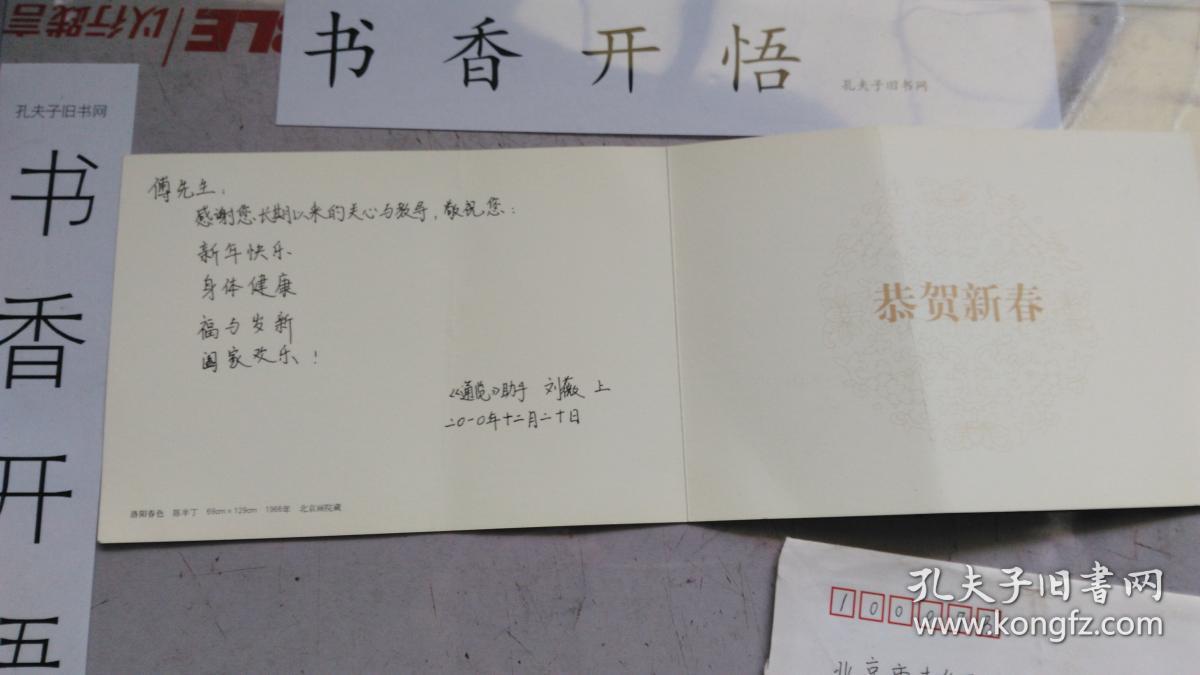 以行践言
书香开悟
孔夫子旧书网
孔夫子旧书网
书香开
傅先生,
感谢您长期以来的关心与教导,敬祝您:
新年快乐
身体健康
福与岁新
阖家欢乐!
《通览》助手 刘薇 上
二〇一〇年十二月二十日
洛阳春色 陈半丁 69cm×129cm 1966年 北京画院藏
恭贺新春
孔夫子旧书网
www.kongfz.com
北京市